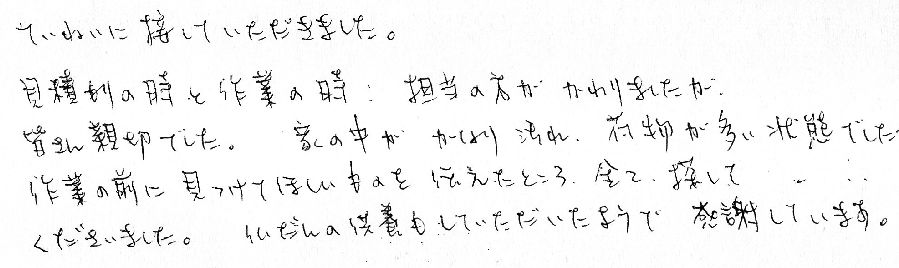 ていねいに接していただきました。
見積りの時と作業の時、担当の方がかわりましたが、
皆さん親切でした。 家の中が かなり汚れ、荷物が多い状態でした
作業の前に見つけてほしいものを伝えたところ、全て、探して
くださいました。 仏だんの供養もしていただいたようで 感謝しています。